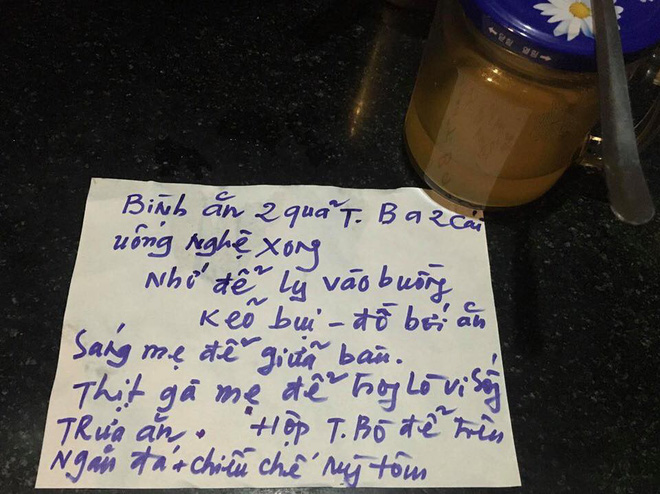 Bình ăn 2 quả T. Ba 2 cái
uống Nghệ xong
Nhớ để ly vào buồng
Kẽo bụi - đồ bới ăn
Sáng mẹ để giữa bàn.
Thịt gà mẹ để trong lò vi sóng
Trưa ăn. + Hộp T. Bò để trên
Ngăn đá + chiều chế mỳ tôm